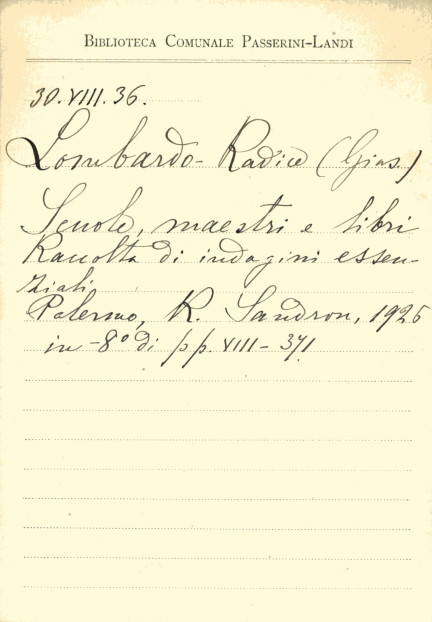 BIBLIOTECA COMUNALE PASSERINI-LANDI
30.VIII.36.
Lombardo-Radice (Gius.)
Scuole, maestri e libri
Raccolta di indagini essen-
ziali
Palermo, R. Sandron, 1926
in-8° di pp. VIII-371